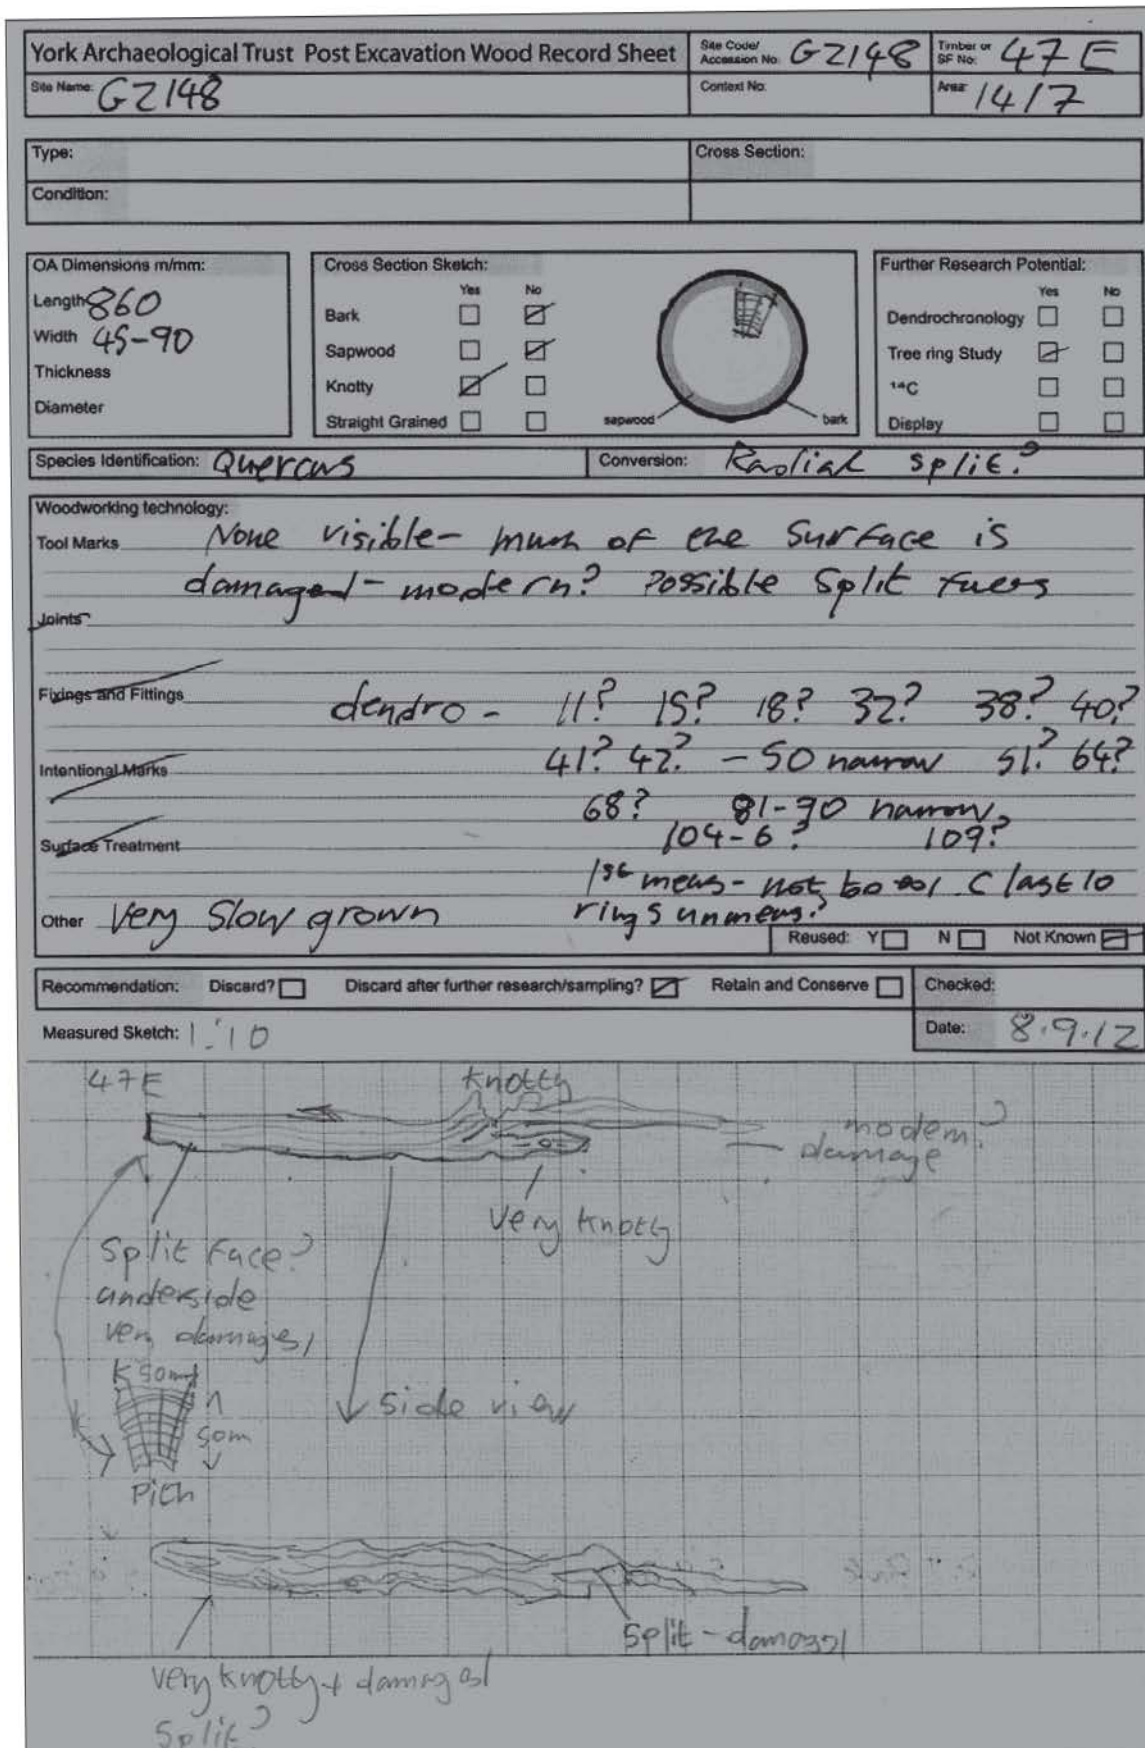 York Archaeological Trust Post Excavation Wood Record Sheet
Site Code/ Accession No: GZ148
Timber or SF No: 47E
Site Name: GZ148
Context No:
Area: 14/7
Type:
Cross Section:
Condition:
OA Dimensions m/mm:
Length 860
Width 45-90
Thickness
Diameter
Cross Section Sketch:
Yes No
Bark
Sapwood
Knotty
Straight Grained
sapwood
bark
Further Research Potential:
Yes No
Dendrochronology
Tree ring Study
14C
Display
Species Identification: Quercus
Conversion: Radial split?
Woodworking technology:
Tool Marks None visible - much of the surface is
damaged - modern? Possible split faces
Joints
Fixings and Fittings
dendro - 11? 15? 18? 32? 38? 40?
Intentional Marks
41? 42? - 50 narrow 51? 64?
68? 81-90 narrow
Surface Treatment
104-6? 109?
1st meas - not to C last 10
Other Very slow grown
rings unmeas?
Reused: Y N Not Known
Recommendation: Discard? Discard after further research/sampling? Retain and Conserve
Checked:
Measured Sketch: 1:10
Date: 8.9.12
47E
Knotty
modern?
damage
Very knotty
Split Face?
underside
very damaged
50m
50m
side view
Pith
Split - damaged
very knotty + damaged
Split?